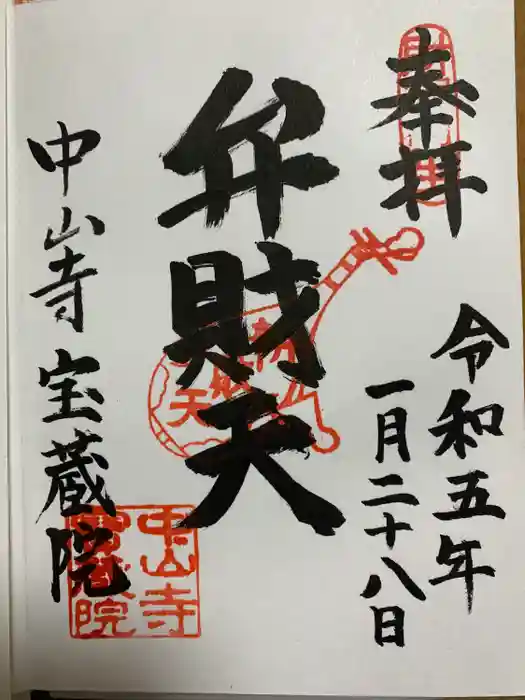 奉拝
令和五年
一月二十八日
弁財天
中山寺 宝蔵院
中山寺
宝蔵院